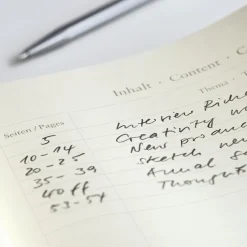 Inhalt · Content · C
Seiten / Pages Thema
5 Interview Rich
10-14 Creativity w
20-25 New produ
35-39 sketch new
40 ff Annual Sa
53-54 Thoughts